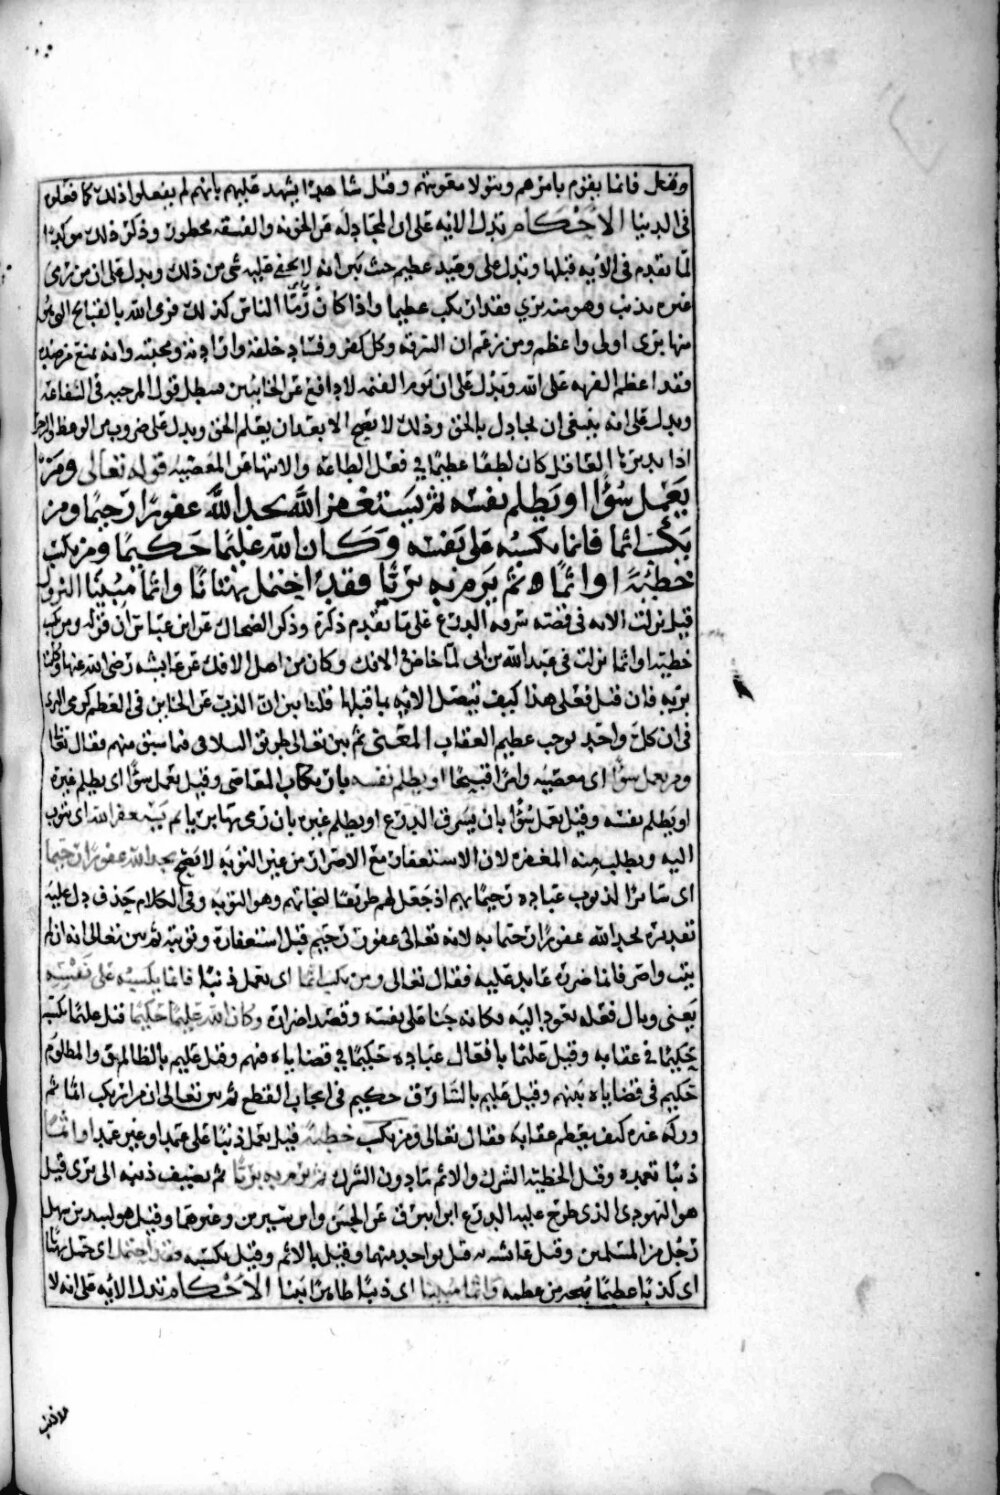 وقيل قائما يقوم بامرهم ويتولا معونتهم وقيل شاهدا يشهد عليهم بانهم لم يفعلوا ذلك كما فعلوه
في الدنيا الاحكام تدل الايه على ان المجادله عن الخونه والفسقه محظور وذكر ذلك موكدا
لما تقدم في الايه قبلها وتدل على وعيد عظيم حيث بين انه لا يخفى عليه شي من ذلك ويدل على ان من رمى
غيره بذنب وهو منه بري فقد ارتكب عظيما واذا كان رميا الناس كذلك فرمى الله بالقبايح التي هو
منها بري اولى واعظم ومن زعم ان السرقه وكل كفر وفساد خلقه وارادته ومحبته وانه يمنع من ضده
فقد اعظم الفريه على الله وتدل على ان يوم القيمه لا دافع عن الخاينين فيبطل قول المرجيه في الشفاعه
ويدل على انه ينبغي ان يجادل بالحق وذلك لا يصح الا بعد ان يعلم الحق ويدل على ضروب من الوعظ والزجر
اذا تدبرها العاقل كان لطفا عظيما في فعل الطاعه والانتهاء عن المعصيه قوله تعالى ومن
يعمل سوءا او يظلم نفسه ثم يستغفر الله يجد الله غفورا رحيما ومن
يكسب اثما فانما يكسبه على نفسه وكان الله عليما حكيما ومن يكسب
خطيئة او اثما ثم يرم به بريا فقد احتمل بهتانا واثما مبينا النزول
قيل نزلت الايه في قصه سرقه الدرع على ما تقدم ذكره وذكر الضحاك عن ابن عباس ان قوله ومن يكسب
خطيئه او اثما نزلت في عبد الله بن ابي لما خاض في الافك وكان من اهل الافك عن عايشه رضي الله عنها وكانت
بريه فان قيل فعلى هذا كيف تتصل الايه بما قبلها قلنا بين ان الذب عن الخاين في العظم كرمي البري
في ان كل واحد يوجب عظيم العقاب المعنى ثم بين تعالى طريق التلافي فيما سبق منهم فقال تعالى
ومن يعمل سوءا اي معصيه وامرا قبيحا او يظلم نفسه بارتكاب المعاصي وقيل يعمل سوءا اي يظلم غيره
او يظلم نفسه وقيل يعمل سوءا بان يسرق الدرع او يظلم غيره بان رمى بها بريا ثم يستغفر الله اي يتوب
اليه ويطلب منه المغفره لان الاستغفار مع الاصرار من غير التوبه لا يصح يجد الله غفورا رحيما
اي ساترا لذنوب عباده رحيما بهم اذ جعل لهم طريقا لنجاتهم وهو التوبه وفي الكلام حذف دل عليه
تقديره يجد الله غفورا رحيما به لانه تعالى غفور رحيم قبل استغفاره وتوبته ثم بين تعالى انه ان لم
يتب واصر فانما ضرره عايد عليه فقال تعالى ومن يكسب اثما اي يعمل ذنبا فانما يكسبه على نفسه
يعني وبال فعله يعود اليه فكانه جنا على نفسه وقصد اضراره وكان الله عليما حكيما قيل عليما بكسبه
حكيما في عقابه وقيل عليما بافعال عباده حكيما في قضاياه فيهم وقيل عليم بالظالم والمظلوم
حكيم في قضاياه بينهم وقيل عليم بالسارق حكيم في ايجاب القطع ثم بين تعالى ان من ارتكب اثما ثم
وركه غيره كيف يعظم عقابه فقال تعالى ومن يكسب خطيئة قيل يعمل ذنبا على عمد او غير عمد او اثما
ذنبا تعمده وقيل الخطيئه الشرك والاثم ما دون الشرك ثم يرم به بريا ثم يضيف ذنبه الى بري قيل
هو اليهودي الذي طرح عليه الدرع ابن ابيرق عن الحسن وابن سيرين وغيرهما وقيل هو لبيد بن سهل
رجل من المسلمين وقيل عائشه به قيل بواحد منهما وقيل بالاثم وقيل بكسبه فقد احتمل اي تحمل بهتانا
اي كذبا عظيما يتحير من عظمه واثما مبينا اي ذنبا ظاهرا بينا الاحكام تدل الايه على انه لا
لا ذنب